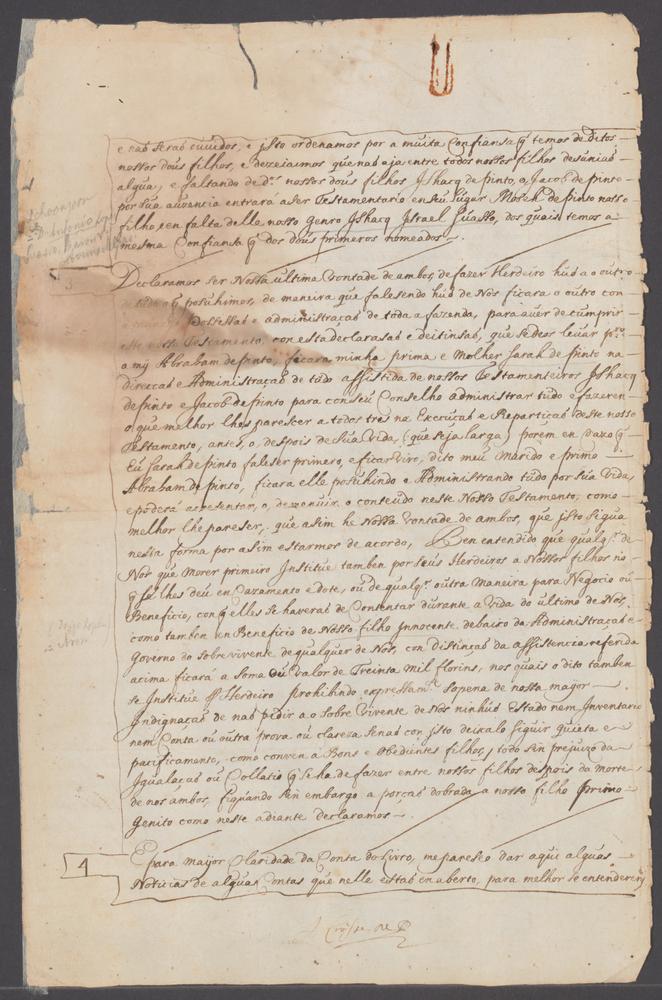 e naõ seraõ cuvidos, e isto ordenamos por a muita Confiansa q̃ temos de ditos
nossos dous filhos, e dezeiamos que naõ aja entre todos nossos filhos desuniaõ
algũa, e faltando de d.ˢ nossos dous filhos Jshacq de pinto, o Jacob de pinto
por sua auzencia entrara a ser Testamentario en seu lugar Moseh de Pinto nosso
filho, e en falta delle nosso genro Jshacq Jsrael Suasso, dos quais temos a
mesma Confiansa q̃ dos dous primeros nomeados.
3
Declaramos ser Nossa ultima Vontade de ambos, de fazer Herdeiro hũ a o outro
de tudo a q̃ posuhimos, de maneira que falesendo hũ de Nós ficara o outro con
posessaõ e administraçaõ de toda a fazenda, para aver de cumprir
este nosso Testamento, con esta declarasaõ e destinsaõ, que se Deos levar pr.º
a my Abraham de pinto, ficara minha prima e Molher Sarah de pinto na
Direcaõ e Administraçaõ de tudo assistida de nossos Testamenteiros Jshacq
de pinto e Jacob de pinto para con seu Conselho administrar tudo e fazeren
o que melhor lhes parescer a todos tres na Execuçaõ e Repartiçaõ deste nosso
Testamento, antes, o, despois de Sua Vida, (que seja larga) porem en cazo q̃
Eu Sarah de pinto faleser primero, e ficar Vivo, dito meu Marido e primo
Abraham de pinto, ficara elle posuhindo e Administrando tudo por sua Vida,
e podera acresentar, o, demenuir o conteudo neste Nosso Testamento, como
melhor lhe pareser, que asim he Nossa Vontade de ambos, que isto sigua
nesta forma por asim estarmos de acordo, Ben entendido que qualq.ʳ de
Nós que Morer primeiro Jnstitue tamben por seus Herdeiros a Nossos filhos no
q̃ se lhes deu en Cazamento e dote, ou de qualq.ʳ outra Maneira para Negocio ou
Beneficio, con q̃ elles se haveraõ de Contentar durante a Vida do ultimo de Nós,
como tamben en Beneficio de Nosso filho Jnnocente debaixo da Administraçaõ e
Governo do sobre vivente de qualquer de Nós, con distinçaõ da assistencia referida
acima ficara a soma ou Valor de Treinta mil florins, nos quais o dito tamben
se Jnstitue p.ʳ Herdeiro prohibindo expressam.ᵗᵉ sopena de nossa mayor
Jndignaçaõ de naõ pedir a o Sobre Vivente de Nós ninhũ Estado nem Jnventario
nem Conta ou outra prova ou claresa senaõ con isto deixalo siguir quieta e
pacificamente, como conven a Bons e obedientes filhos, todo sin prejuizo da
Jgualaçaõ ou Collatio q̃ se ha de fazer entre nossos filhos despois da morte
de nos ambos, ficando sin embargo a porçaõ dobrada a nosso filho primo
genito como neste adiante declaramos.
4
E para mayor Claridade da Conta do Livro, me paresco dar aqui algũas
Noticias de algũas Contas que nelle estaõ en aberto, para melhor se entenderem